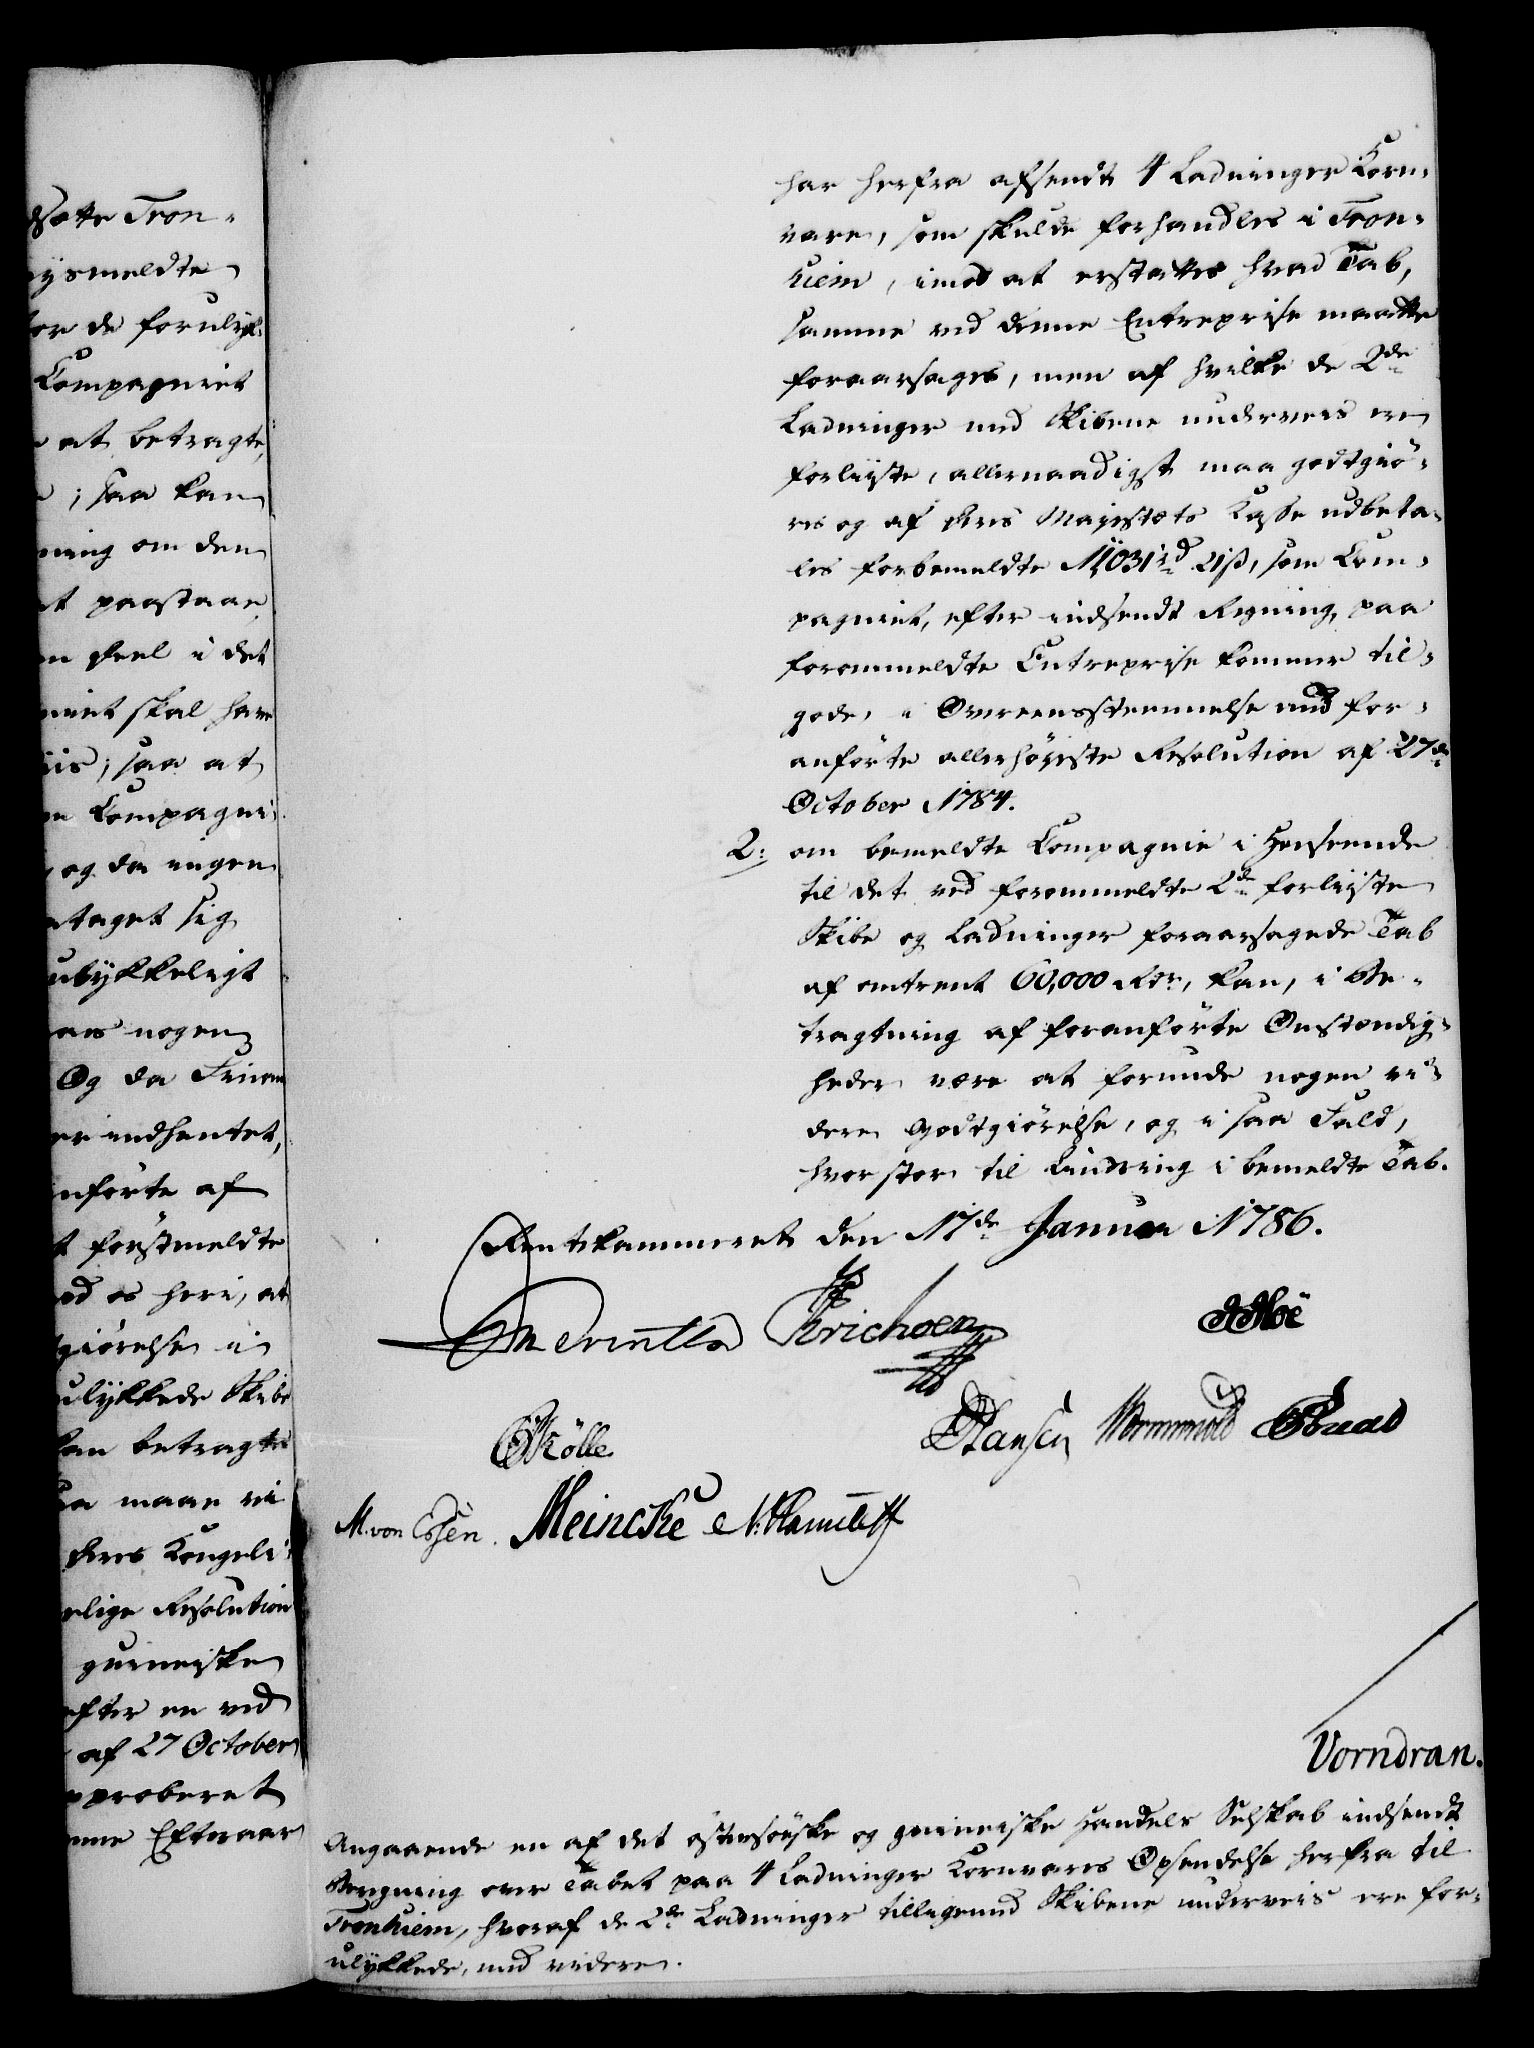 dsatte Tron-
nysmeldte
for de forulyk-
Compagniet
at betragte,
; saa kan
ning om den
at paastaae
en Deel i det
niet skal have
iis; saa at
en Compagni-
og da ingen
taget sig
ulykkeligt
nogen
Og da Priserne
er indhentet,
nførte af
t førstmeldte
od os heri, at
giørelse i
ulykkede Skibe
kan betragtes
saa maae vi
Deres Kongeli-
elige Resolution
guineiske
efter en ved
af 27 October
pproberet
nne Efteraar
har herfra afsendt 4 Ladninger Korn-
vare, som skulde forhandles i Tron-
hiem, imod at erstatte hvad Tab,
samme ved denne Entreprise maatte
foraarsages, men af hvilke de 2de
Ladninger med Skibene underveis ere
forliiste, allernaadigst maa godtgiø-
res og af Deres Majestæts Kasse udbeta-
les forbemeldte 11,031 rd 21 ß, som Com-
pagniet, efter indsendt Regning, paa
forommeldte Entreprise kommer til-
gode, i Overeensstemmelse med for-
anførte allerhøyeste Resolution af 27de
October 1784.
2: om bemeldte Compagnie i Henseende
til det ved forommeldte 2de forliiste
Skibe og Ladninger foraarsagede Tab
af omtrent 60,000 Rdr, kan, i Be-
tragtning af foranførte Omstændig-
heder være at forunde nogen vi-
dere Godtgiørelse, og i saa Fald,
hvor stor til Lindring i bemeldte Tab.
Rentekammeret den 17de Januar 1786.
Erichsen
Moë
Krölle
Hansen Wormskiold
M. von Essen. Meincke
Vorndran.
Angaaende en af det østersøiske og guineiske Handels Selskab indsendt
Beregning over Tabet paa 4 Ladninger Kornvares Opsendelse herfra til
Tronhiem, hvoraf de 2de Ladninger tilligemed Skibene underveis ere for-
ulykkede, med videre.